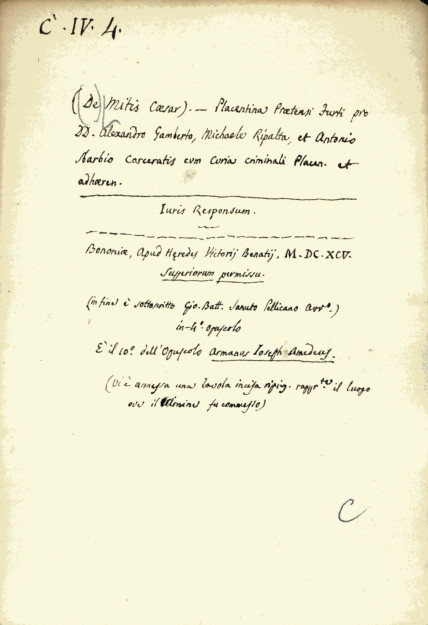 C. IV. 4.
(De Mitis Cæsar). — Placentina Prætensi Furti pro
DD. Alexandro Gamberto, Michaele Ripalta, et Antonio
Narbio Carceratis cum Curia criminali Placen. et
adhæren.
Iuris Responsum.
Bononiæ, Apud Heredes Victorij Benatij. M.DC.XCV.
Superiorum permissu.
(in fine è sottoscritto Gio. Batt. Sanuto Pellicano Avv.º)
in-4º opuscolo
È il 10º dell'Opuscolo Armanus Joseph Amedeus.
(Vi è annessa una tavola incisa ripieg. rappr.te il luogo
ove il Crimine fu commesso)
C